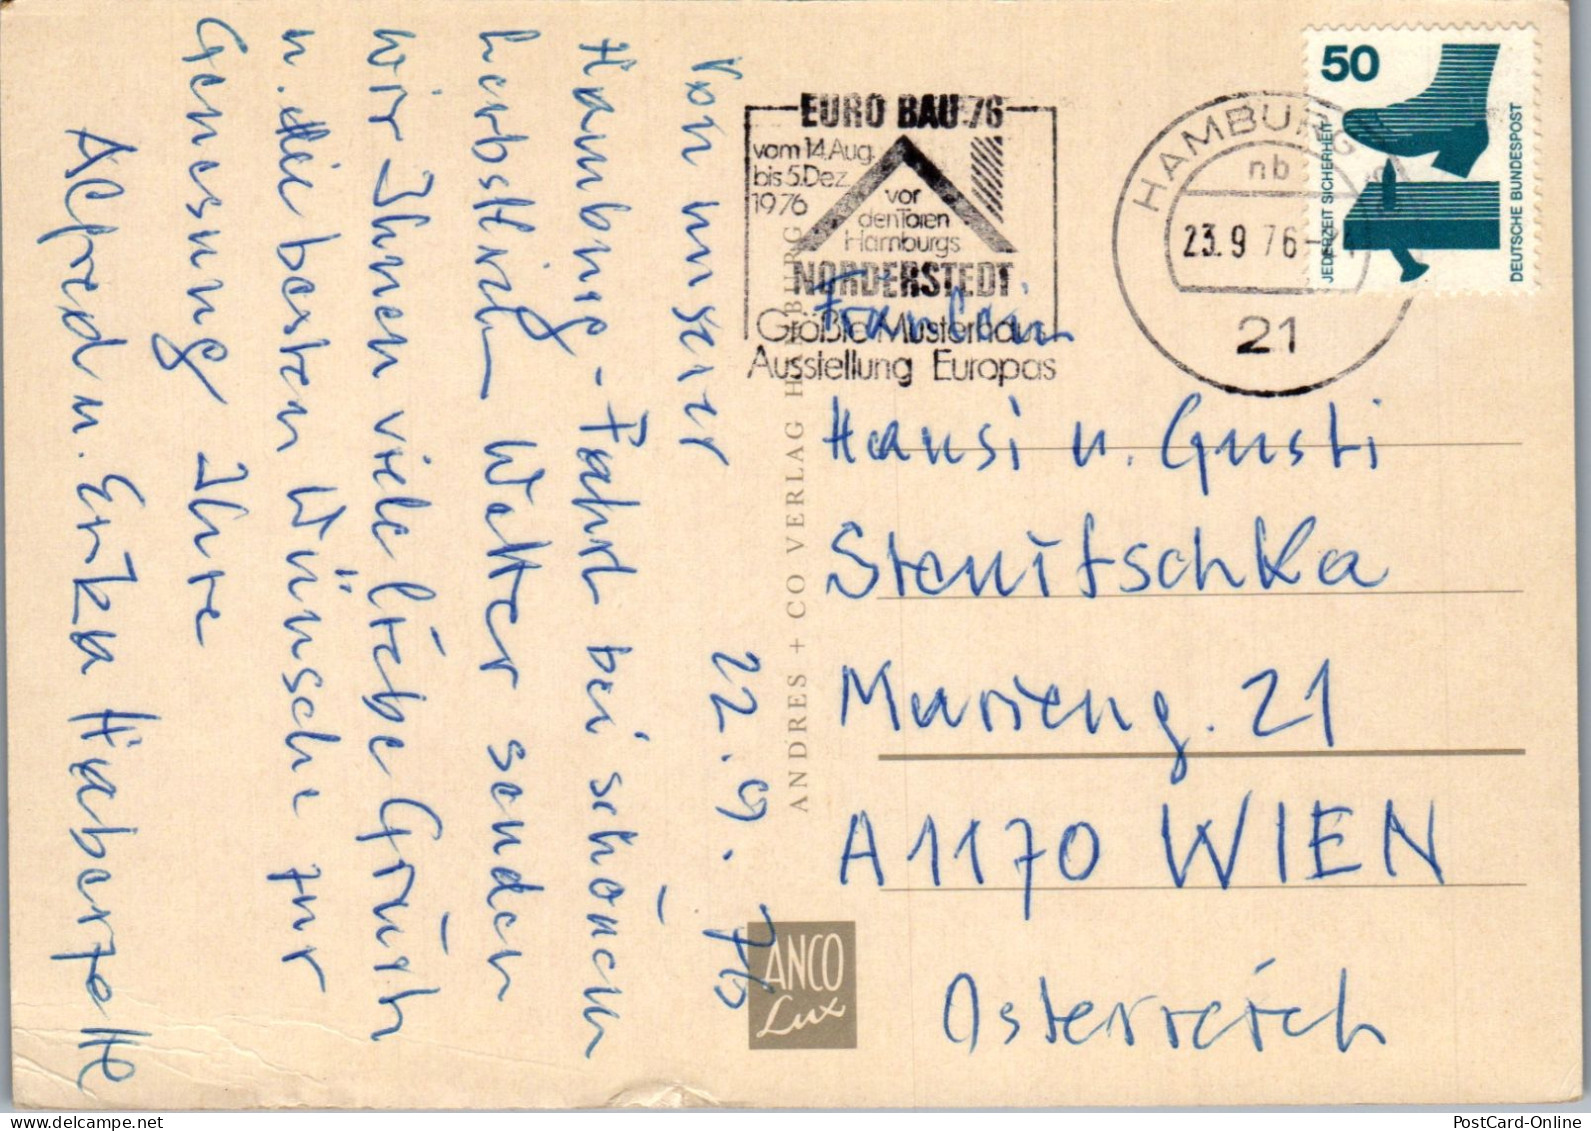 22.9.76
Von unserer
Hamburg-Fahrt bei schönem
herbstlich Wetter senden
wir Ihnen viele liebe Grüße
u. die besten Wünsche zur
Genesung Ihre
Alfred u. Erika
EURO BAU 76
vom 14. Aug.
bis 5. Dez.
1976
vor
den Toren
Hamburgs
NORDERSTEDT
Größte Musterhaus
Ausstellung Europas
HAMBURG
nb
23.9.76
21
50
JEDERZEIT SICHERHEIT
DEUTSCHE BUNDESPOST
Fräulein
Hansi u. Gusti
Stenitschka
Marieng. 21
A 1170 WIEN
Österreich
ANDRES + CO VERLAG HAMBURG
ANCO
Lux
PostCard-Online